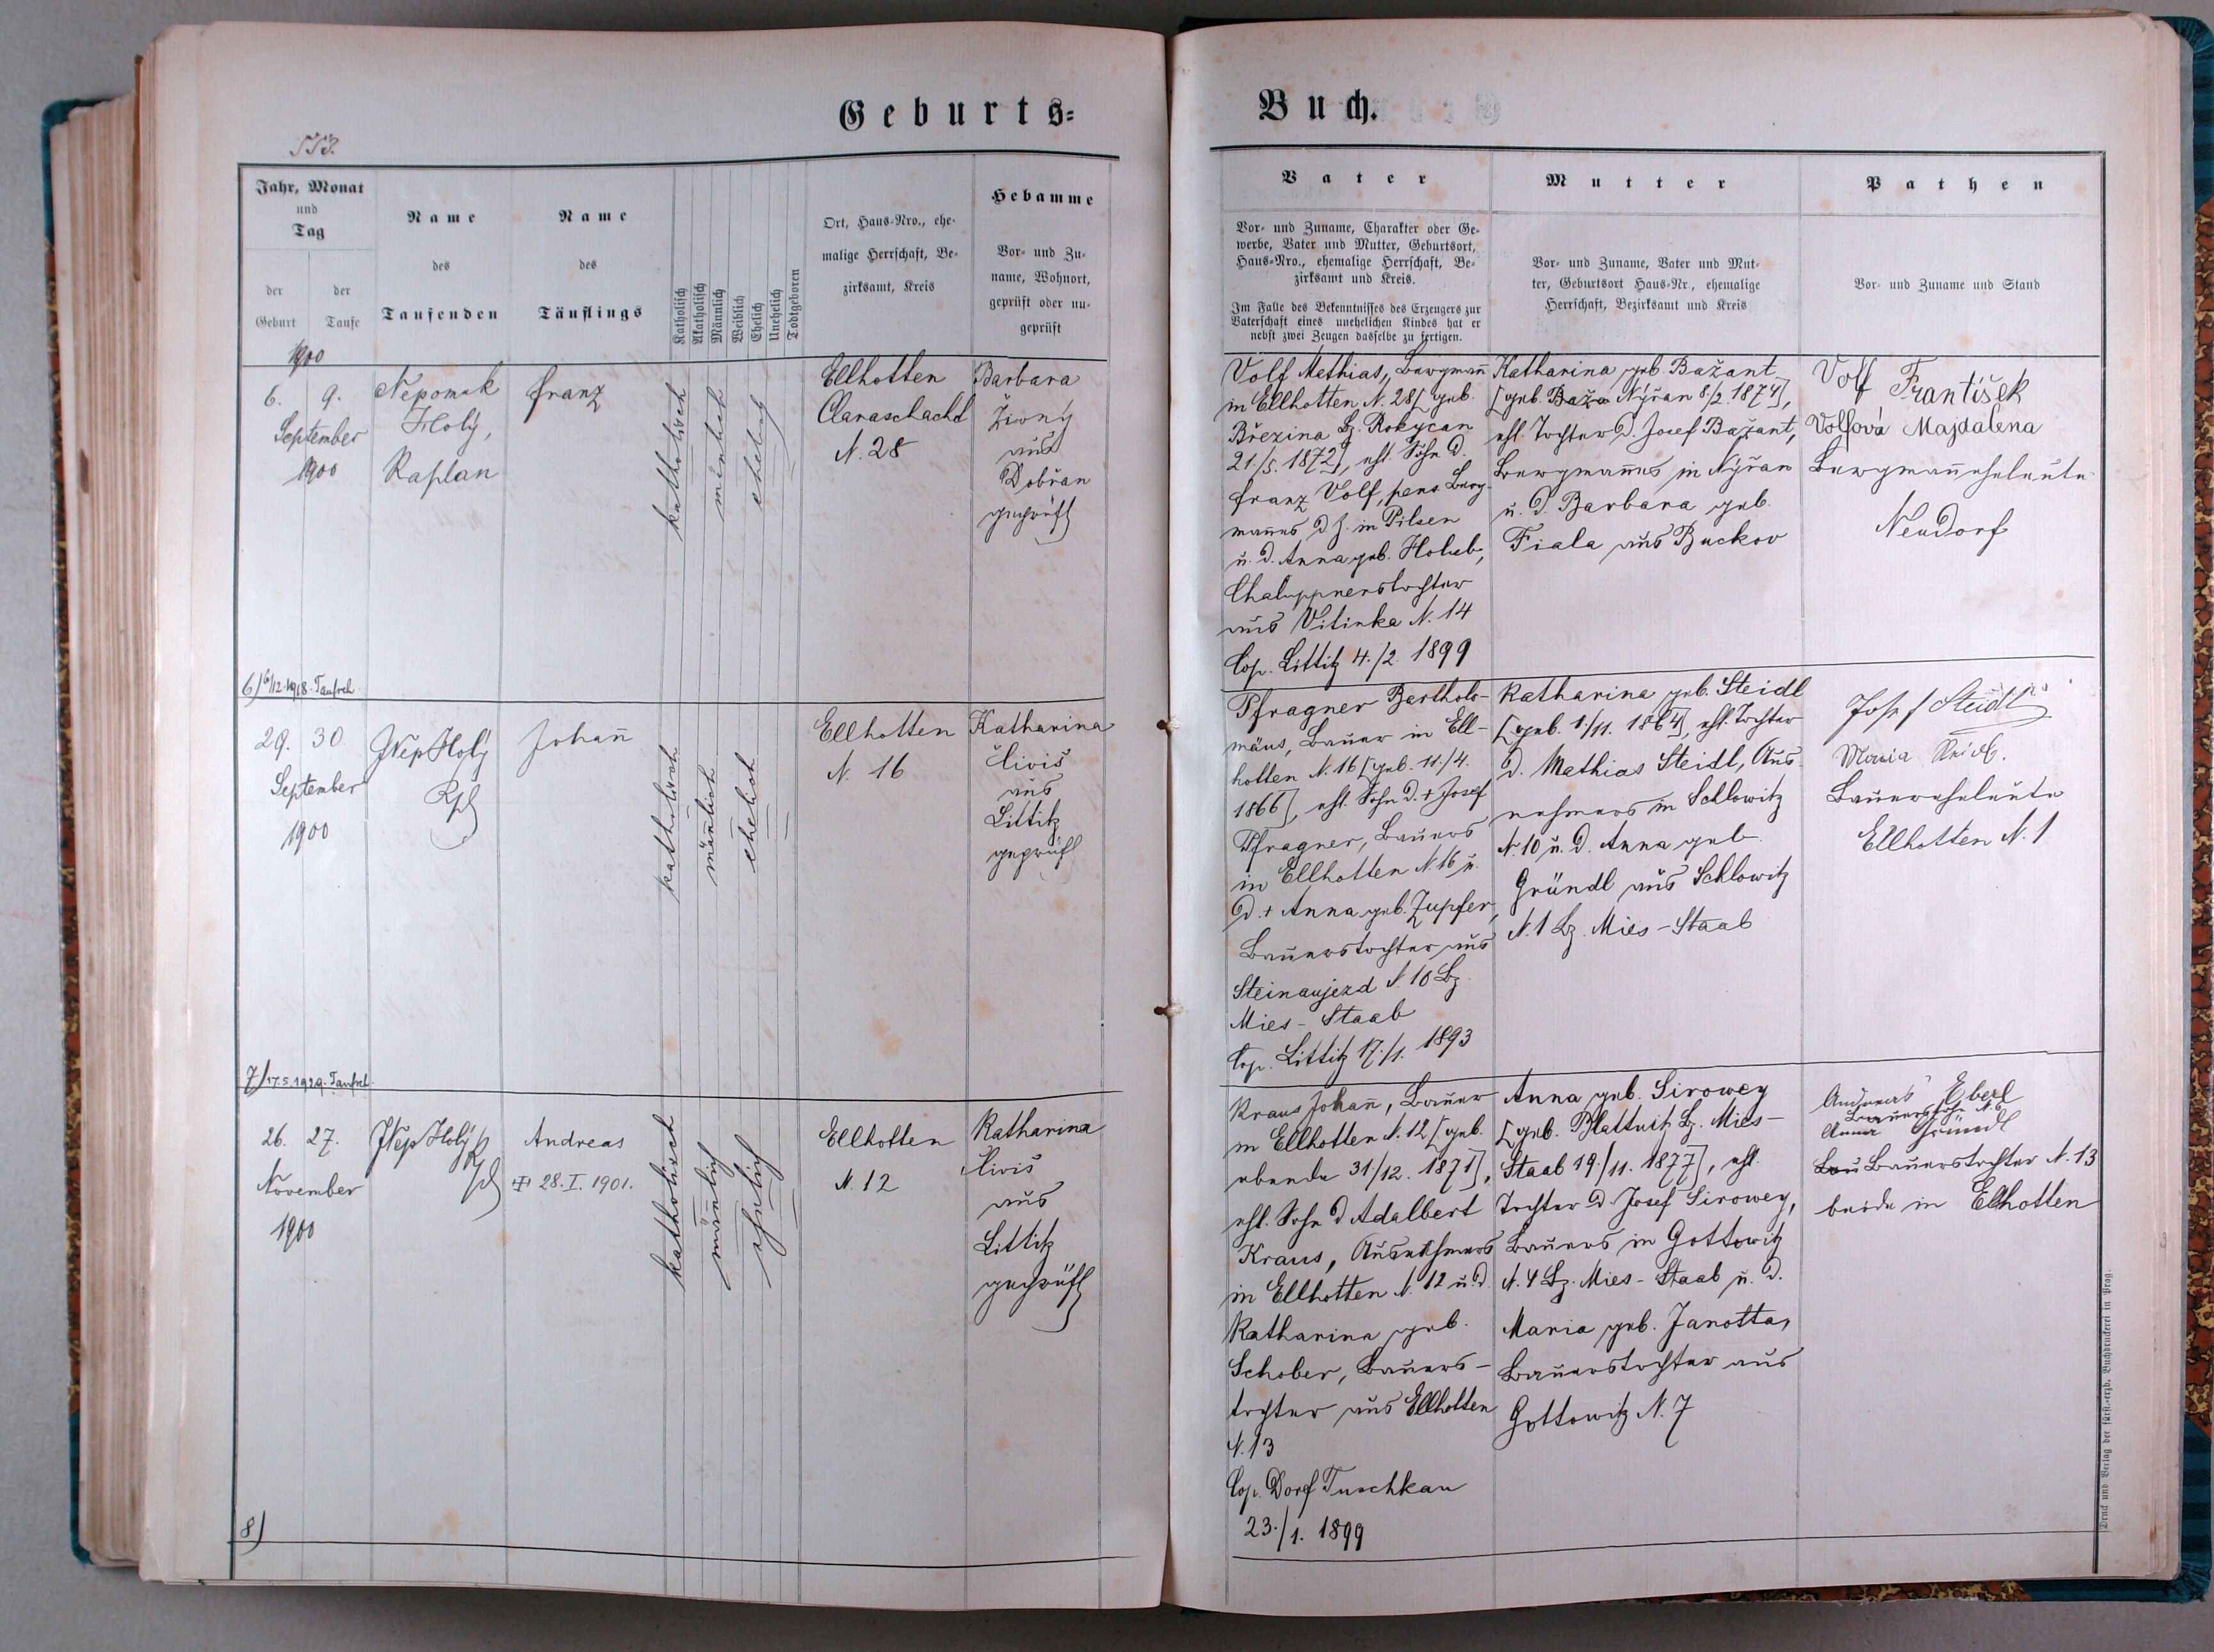 Geburts=
553.
Jahr, Monat
und
Tag
der
Geburt
der
Taufe
Name
des
Taufenden
Name
des
Täuflings
Katholisch
Akatholisch
Männlich
Weiblich
Ehelich
Unehelich
Todtgeboren
Ort, Haus-Nro., ehe-
malige Herrschaft, Be-
zirksamt, Kreis
Hebamme
Vor- und Zu-
name, Wohnort,
geprüft oder un-
geprüft
1900
6. 9.
September
1900
Nepomuk
Holý,
Kaplan
Franz
katholisch
männlich
ehelich
Ellhotten
Claraschacht
N. 28
Barbara
Živný
aus
Dobřan
geprüft
6) 6/12. 1918. Taufsch.
29. 30.
September
1900
JNep Holý
Kpl
Johann̄
katholisch
män̄lich
ehelich
Ellhotten
N. 16
Katharina
Čiviš
aus
Littitz
geprüft
7) 17.5.1929. Taufsch.
26. 27.
November
1900
JNep Holý
Kpl
Andreas
28. I. 1901.
katholisch
män̄lich
ehelich
Ellhotten
N. 12
Katharina
Čiviš
aus
Littitz
geprüft
8)
Buch.
Vater
Vor- und Zuname, Charakter oder Ge-
werbe, Vater und Mutter, Geburtsort,
Haus-Nro., ehemalige Herrschaft, Be-
zirksamt und Kreis.
Im Falle des Bekenntnisses des Erzeugers zur
Vaterschaft eines unehelichen Kindes hat er
nebst zwei Zeugen dasselbe zu fertigen.
Mutter
Vor- und Zuname, Vater und Mut-
ter, Geburtsort Haus-Nr., ehemalige
Herrschaft, Bezirksamt und Kreis
Pathen
Vor- und Zuname und Stand
Volf Mathias, Bergman̄
in Ellhotten N. 28 [geb.
Březina Bz. Rokycan
21./5. 1872], ehl. Sohn d.
Franz Volf, pens. Berg-
man̄es d. Z. in Pilsen
u. d. Anna geb. Holub,
Chaluppnerstochter
aus Vitinka N. 14
Cop. Littitz 4./2. 1899
Katharina geb. Bažant
[geb. Nýřan 8/2. 1874],
ehl. Tochter d. Josef Bažant,
Bergman̄es in Nýřan
u. d. Barbara geb.
Fiala aus Buckov
Volf František
Volfová Majdalena
Bergman̄seheleute
Neudorf
Pfragner Bartholo-
mäus, Bauer in Ell-
hotten N. 16 [geb. 11./4.
1866], ehl. Sohn d. + Josef
Pfragner, Bauers
in Ellhotten N. 16 u.
d. + Anna geb. Zupfer,
Bauerstochter aus
Steinaujezd N. 10 Bz.
Mies-Staab
Cop. Littitz 17./1. 1893
Katharina geb. Steidl
[geb. 1./11. 1864], ehl. Tochter
d. Mathias Steidl, Aus-
nehmers in Schlowitz
N. 10 u. d. Anna geb.
Gründl aus Schlowitz
N. 1 Bz. Mies-Staab
Josef Steidl
Maria
Bauerseheleute
Ellhotten N. 1
Kraus Johan̄, Bauer
in Ellhotten N. 12 [geb.
ebenda 31/12. 1871],
ehl. Sohn d. Adalbert
Kraus, Ausnehmers
in Ellhotten N. 12 u. d.
Katharina geb.
Schober, Bauers-
tochter aus Ellhotten
N. 13
Cop. Dorf Tuschkau
23./1. 1899
Anna geb. Sirowey
[geb. Blattnitz Bz. Mies-
Staab 19./11. 1877], ehl.
Tochter d. Josef Sirowey,
Bauers in Gottowitz
N. 4 Bz. Mies-Staab u. d.
Maria geb. Janotta,
Bauerstochter aus
Gottowitz N. 7
Andreas Eberl
Bauerssohn N. 6
Anna Gründl
Bauerstochter N. 13
beide in Ellhotten
Druck und Verlag der fürst.-erzb. Buchdruckerei in Prag.